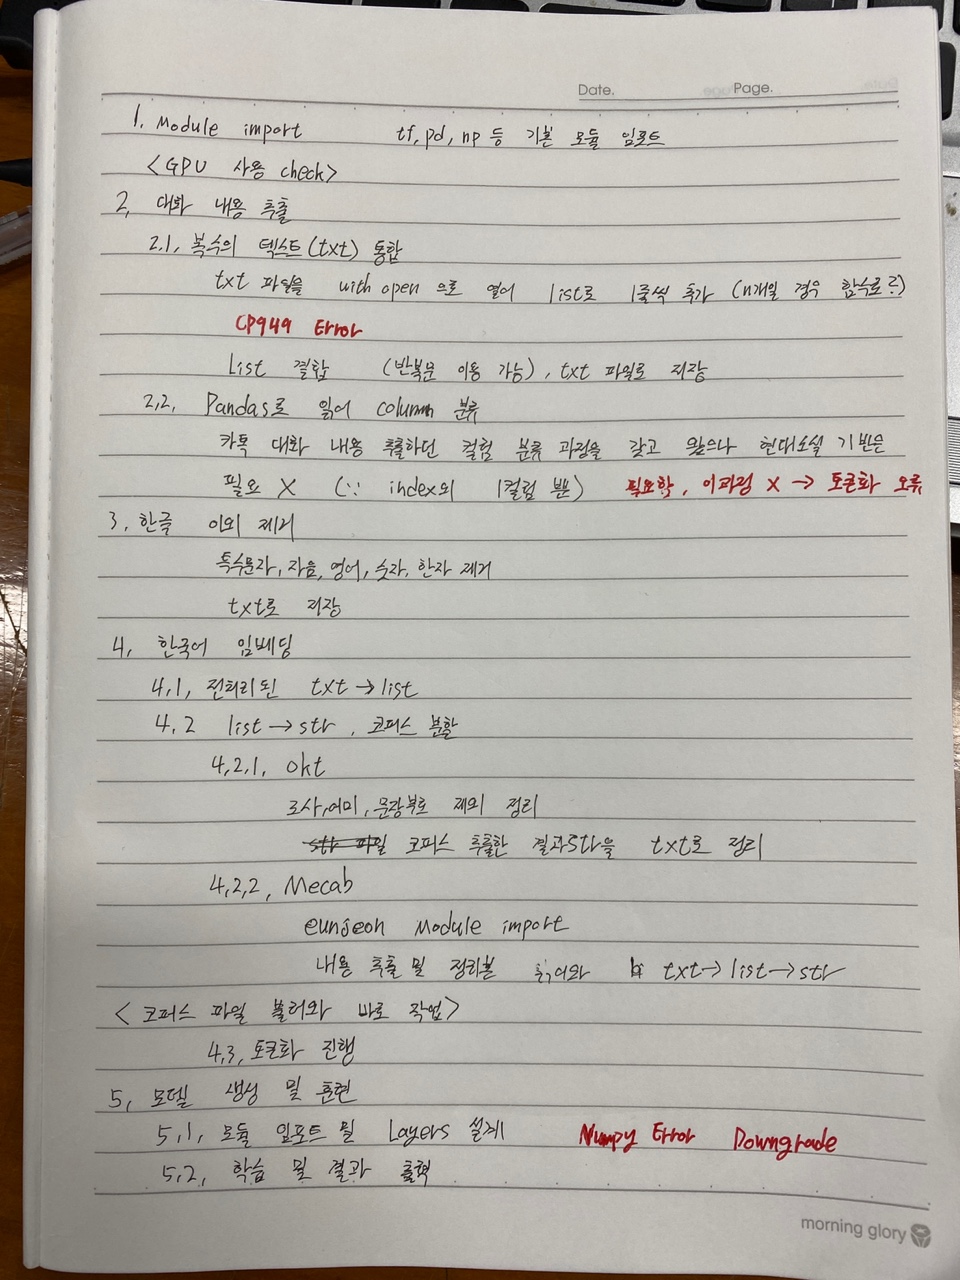 Date. Page.
1. Module import tf, pd, np 등 기본 모듈 임포트
<GPU 사용 check>
2. 대화 내용 추출
2.1. 복수의 텍스트(txt) 통합
txt 파일을 with open 으로 열어 list로 1줄씩 추가 (n개일 경우 함수로?)
CP949 Error
List 결합 (반복문 이용 가능), txt 파일로 저장
2.2. Pandas로 읽어 column 분류
카톡 대화 내용 추출하던 컬럼 분류 과정을 갖고 왔으나 현대소설 기반은
필요 X (∵ index외 1컬럼 뿐) 필요함, 이과정 X → 토큰화 오류
3. 한글 이외 제거
특수문자, 자음, 영어, 숫자, 한자 제거
txt로 저장
4. 한국어 임베딩
4.1. 전처리된 txt → list
4.2 list → str, 코퍼스 분할
4.2.1. Okt
조사, 어미, 문장부호 제외 정리
str 파일 코퍼스 추출한 결과str을 txt로 정리
4.2.2. Mecab
eunjeon Module import
내용 추출 및 정리본 txt → list → str
<코퍼스 파일 불러와 바로 작업>
4.3. 토큰화 진행
5. 모델 생성 및 훈련
5.1. 모듈 임포트 및 Layers 설계 Numpy Error Downgrade
5.2. 학습 및 결과 출력
morning glory